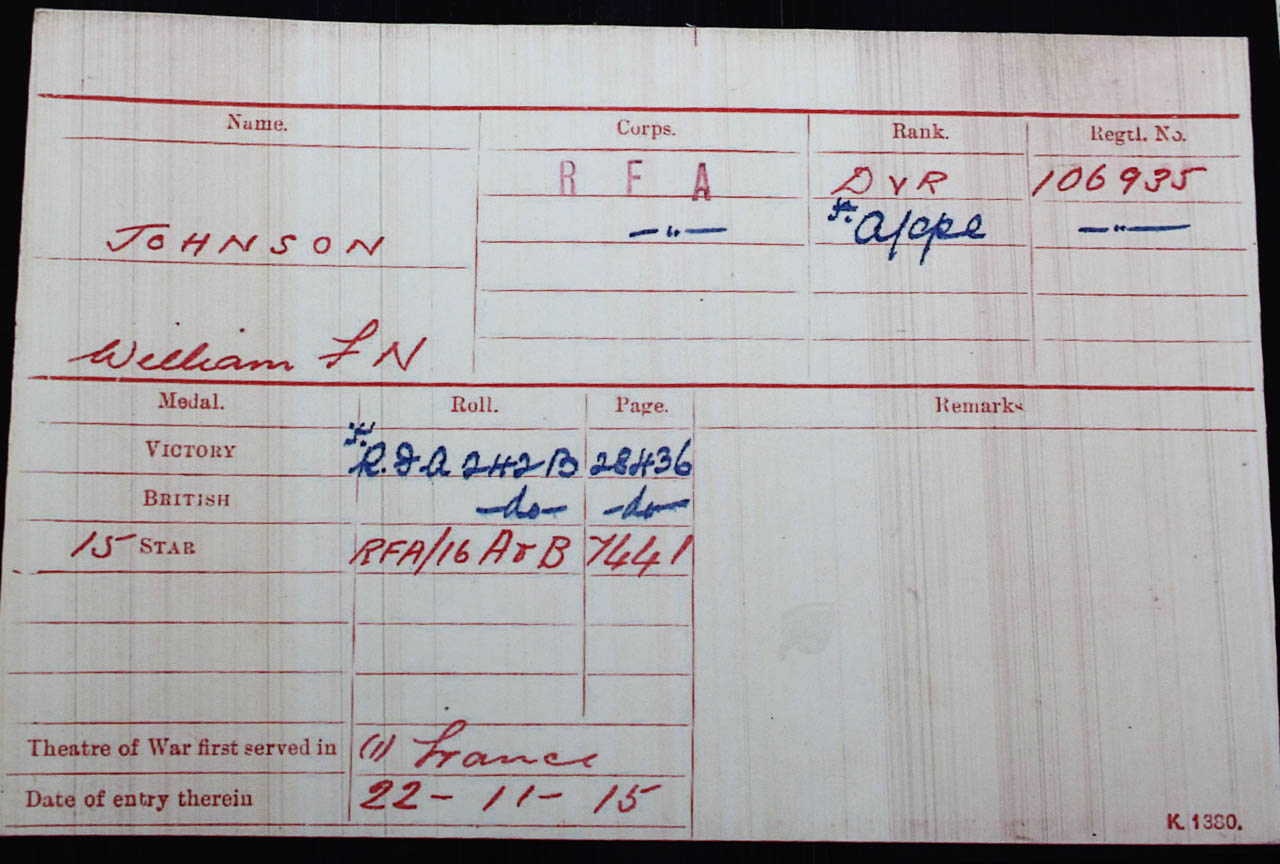 Name. Corps. Rank. Regtl. No.
R F A DVR 106935
JOHNSON —"— *A/Cpl —"—
William F N
Medal. Roll. Page. Remarks
VICTORY *R.F.A 242B 28436
BRITISH -do- -do-
15 STAR RFA/16 A & B 7441
Theatre of War first served in (1) France
Date of entry therein 22 - 11 - 15
K. 1380.